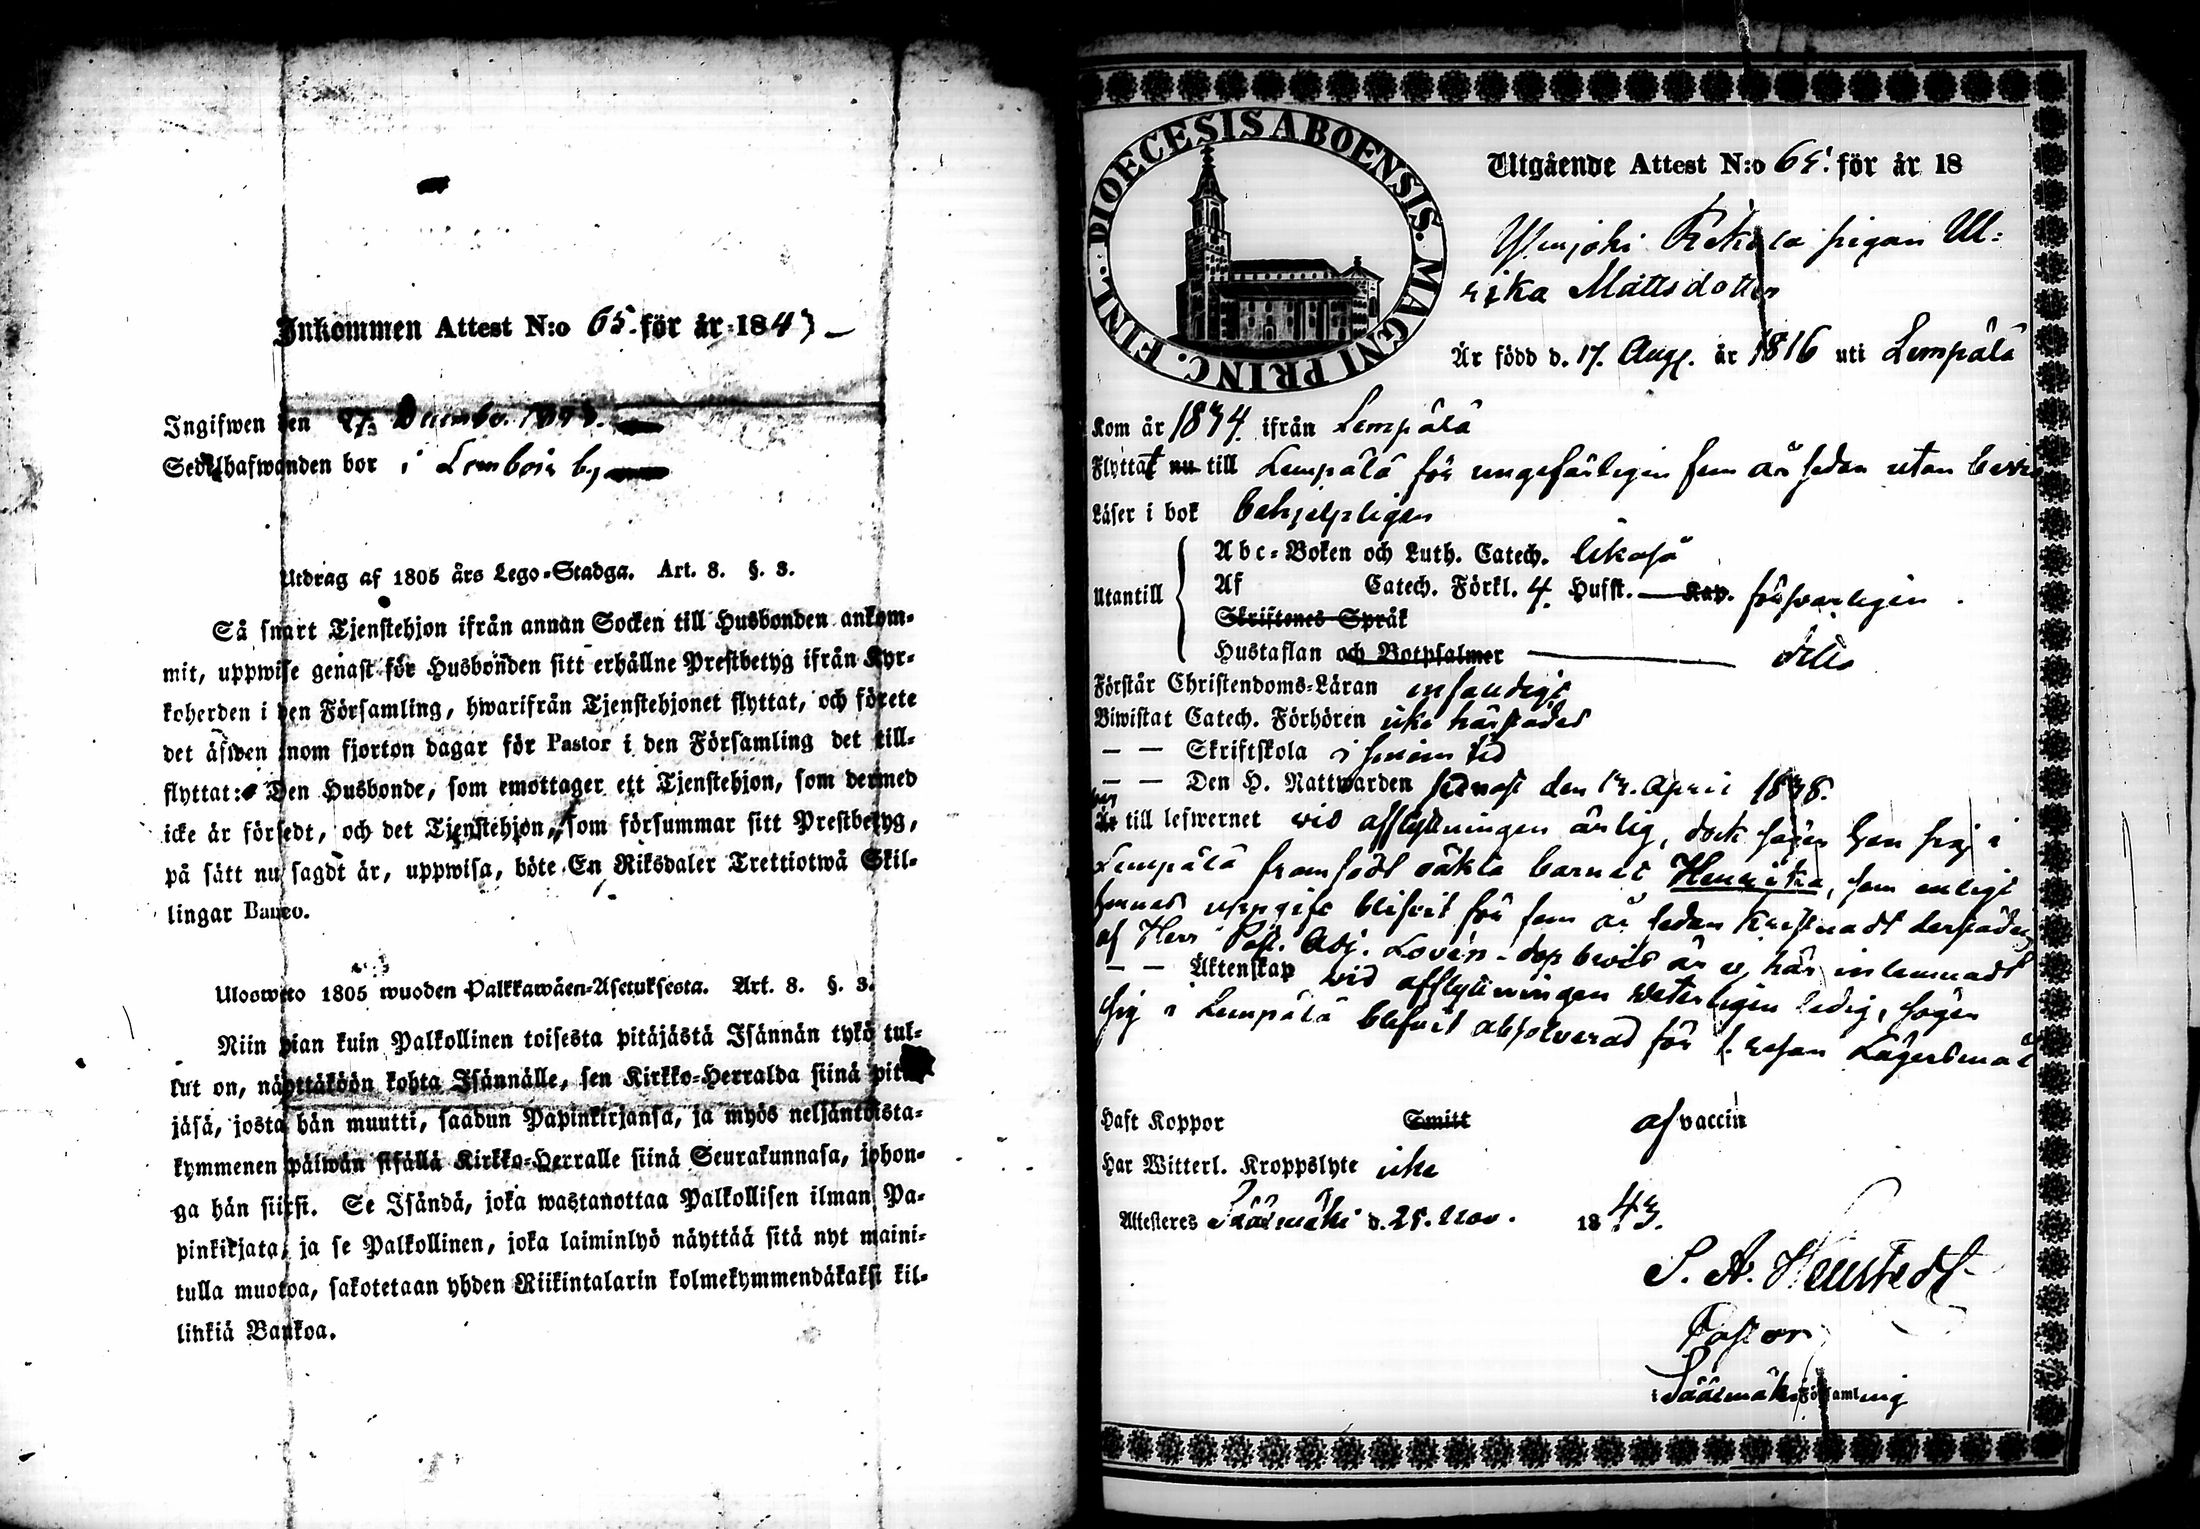 Inkommen Attest N:o 65. för år 1843
Ingifwen den 27 December 1843.
Sedelhafwanden bor i Lembois by
Utdrag af 1805 års Lego-Stadga. Art. 8. §. 3.
Så snart Tjenstehjon ifrån annan Socken till Husbonden ankom-
mit, uppwise genast för Husbonden sitt erhållne Prestbetyg ifrån Kyr-
koherden i den Församling, hwarifrån Tjenstehjonet flyttat, och förete
det äfwen inom fjorton dagar för Pastor i den Församling det till-
flyttat: Den Husbonde, som emottager ett Tjenstehjon, som dermed
icke är försedt, och det Tjenstehjon, som försummar sitt Prestbetyg,
på sätt nu sagdt är, uppwisa, böte En Riksdaler Trettiotwå Skil-
lingar Banco.
Uloswetto 1805 wuoden Palkkawäen-Asetuksesta. Art. 8. §. 3.
Niin pian kuin Palkollinen toisesta pitäjästä Isännän tykö tul-
lut on, näyttäköön kohta Isännälle, sen Kirkko-Herralda siinä pitä-
jäsä, josta hän muutti, saadun Papinkirjansa, ja myös neljäntoista-
kymmenen päiwän sisällä Kirkko-Herralle siinä Seurakunnasa, johon-
ga hän siirsi. Se Isändä, joka wastanottaa Palkollisen ilman Pa-
pinkirjata, ja se Palkollinen, joka laiminlyö näyttää sitä nyt maini-
tulla muotoa, sakotetaan yhden Riikintalarin kolmekymmendäkaksi kil-
linkiä Bankoa.
DIOECESIS ABOENSIS. MAGNI PRINC. FINL.
Utgående Attest N:o 65. för år 18
pigan Ul=
rika Mattsdotter
Är född d. 17. Aug. år 1816 uti Lempälä
Kom år 1834. ifrån Lempälä
Flyttat nu till Lempälä för ungefärligen fem år sedan utan
Läser i bok behjelpligen
Utantill
Abc-Boken och Luth. Catech. likaså
Af Catech. Förkl. 4. Hufst. Kap. försvarligen
Skriftenes Språk
Hustaflan och Botpsalmer dito
Förstår Christendoms-Läran enfaldigt
Biwistat Catech. Förhören icke härstädes
— — Skriftskola i sinom tid
— — Den H. Nattwarden sednast den 13. April 1838.
Är till lefwernet wid afflyttningen ärlig, dock säges hon sig i
Lempälä framfödt oäkta barnet Henrika, som enligt
hennes uppgift blifvit för fem år sedan kristnadt derstädes
af Herr Past. Adj. Lovén - dop bevis är ej här inlemnadt
— — Äktenskap wid afflyttningen veterligen ledig, säges
sig i Lempälä blifvit absolverad för 1. resan Lägersmål
Haft Koppor Smitt af vaccin
Har Witterl. Kroppslyte icke
Attesteres Sääxmäki d. 25. Nov. 1843.
S. A.
Pastor
i Sääxmäki Församling